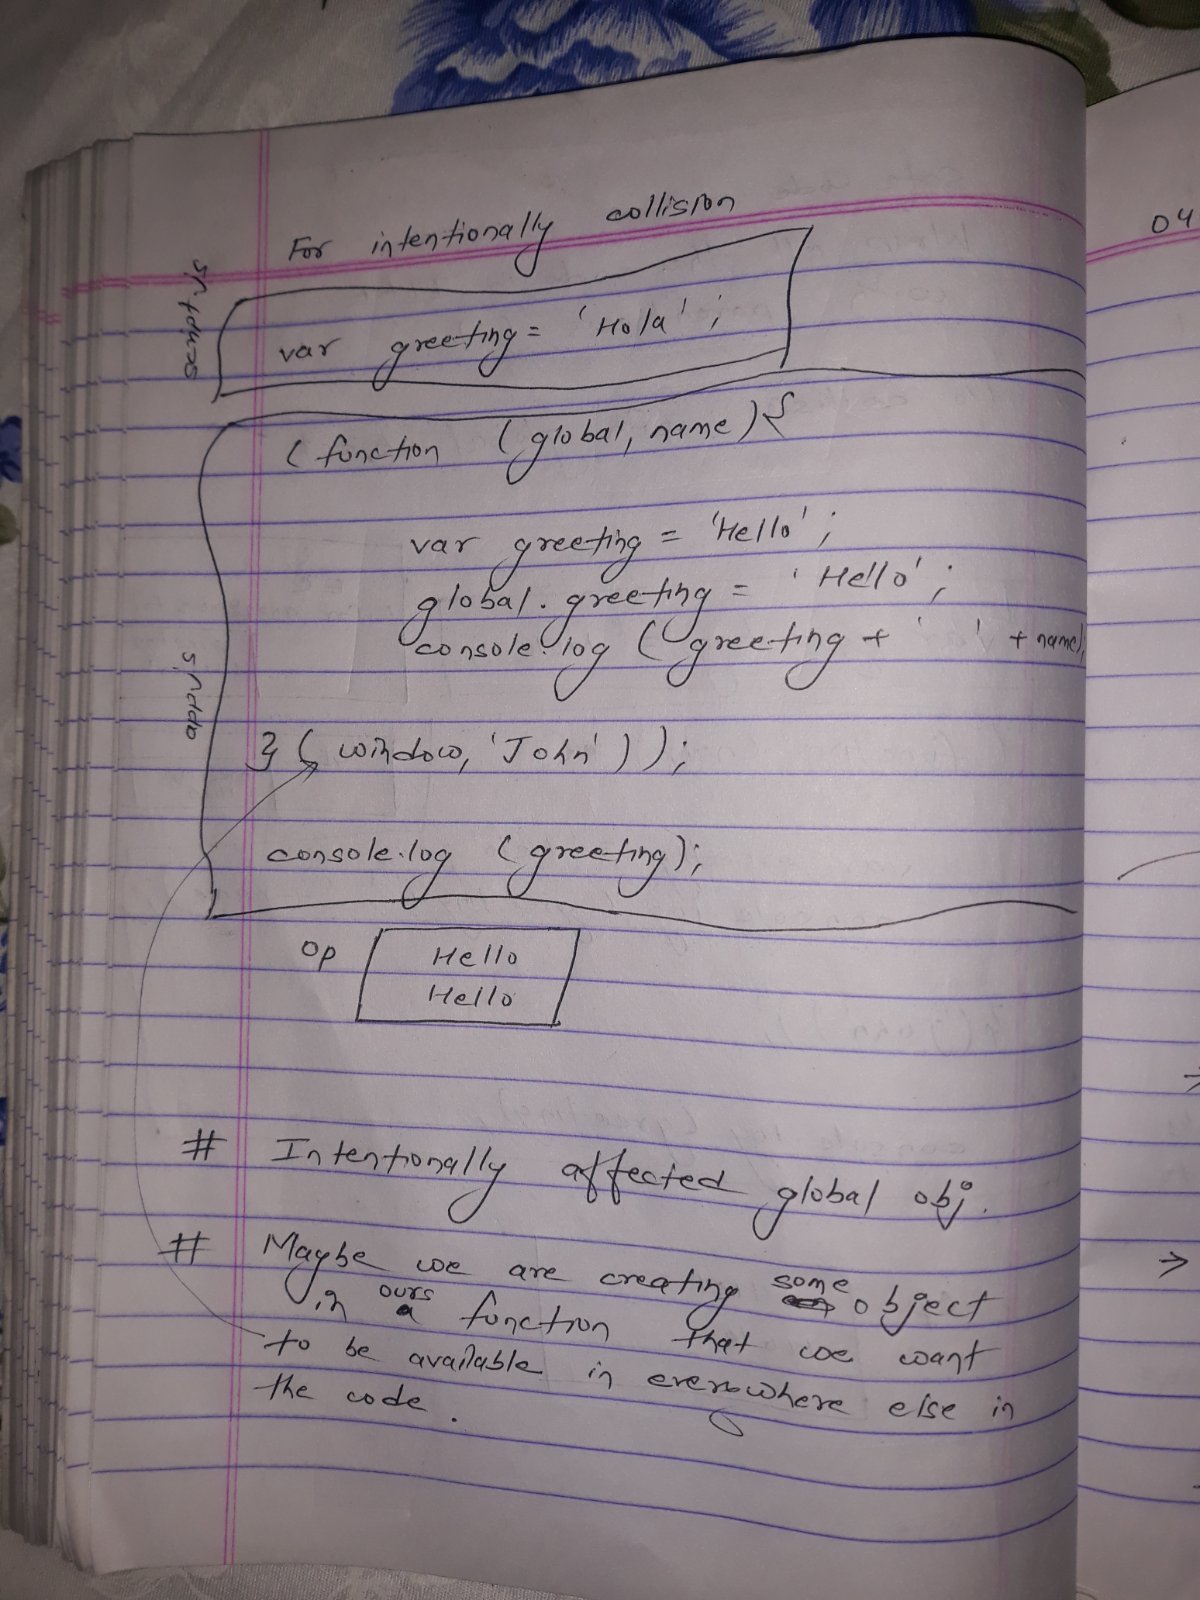 For intentionally collision
script.js
var greeting = 'Hola';
(function (global, name) {
var greeting = 'Hello';
global.greeting = 'Hello';
console.log (greeting + ' ' + name);
app.js
}(window, 'John'));
console.log (greeting);
op
Hello
Hello
# Intentionally affected global obj.
# Maybe we are creating some object
in ours function that we want
to be available in everywhere else in
the code.
04